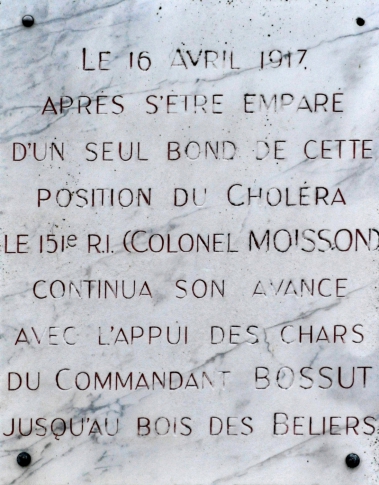 LE 16 AVRIL 1917
APRÈS S'ÊTRE EMPARÉ
D'UN SEUL BOND DE CETTE
POSITION DU CHOLÉRA
LE 151e R.I. (COLONEL MOISSON)
CONTINUA SON AVANCE
AVEC L'APPUI DES CHARS
DU COMMANDANT BOSSUT
JUSQU'AU BOIS DES BELIERS